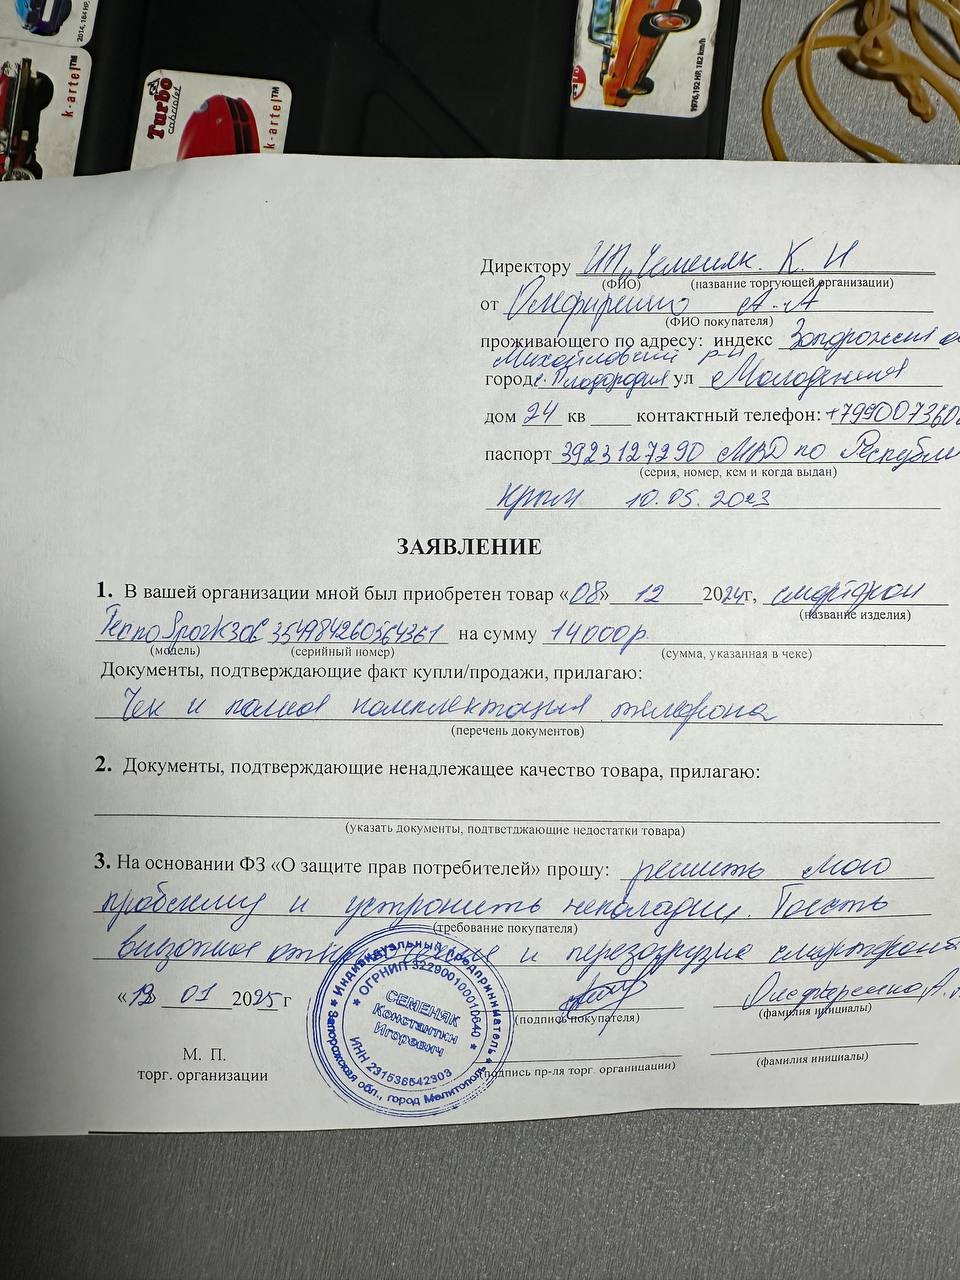 2014, 184 HP,
k-artel™
Turbo
cabriolet
k-artel™
1976, 192 HP, 182 km/h
Директору ИП "Семеняк. К. И
(ФИО) (название торгующей организации)
от Олефиренко А.А
(ФИО покупателя)
проживающего по адресу: индекс Запорожская
Михайловский р-н
город с. Плодородия ул Молодежная
дом 24 кв ____ контактный телефон: +799007360
паспорт 3923127290 МВД по Республи
(серия, номер, кем и когда выдан)
Крым 10.05.2023
ЗАЯВЛЕНИЕ
1. В вашей организации мной был приобретен товар «08» 12 2024г, смартфон
(название изделия)
Tecno Spark30C 354984260564361 на сумму 14000р
(модель) (серийный номер) (сумма, указанная в чеке)
Документы, подтверждающие факт купли/продажи, прилагаю:
Чек и полная комплектация телефона
(перечень документов)
2. Документы, подтверждающие ненадлежащее качество товара, прилагаю:
(указать документы, подтветджающие недостатки товара)
3. На основании ФЗ «О защите прав потребителей» прошу: решить мою
проблему и устронить неполадки.
(требование покупателя)
и перезагрузка смартфона
«13» 01 2025г
(подпись покупателя) (фамилия инициалы)
Олефиренко А.
М. П.
торг. организации
(подпись пр-ля торг. организации) (фамилия инициалы)
★ Индивидуальный предприниматель ★
Запорожская обл., город Мелитополь
★ ОГРНИП 322900100010640 ★
СЕМЕНЯК
Константин
Игоревич
ИНН 231536542303